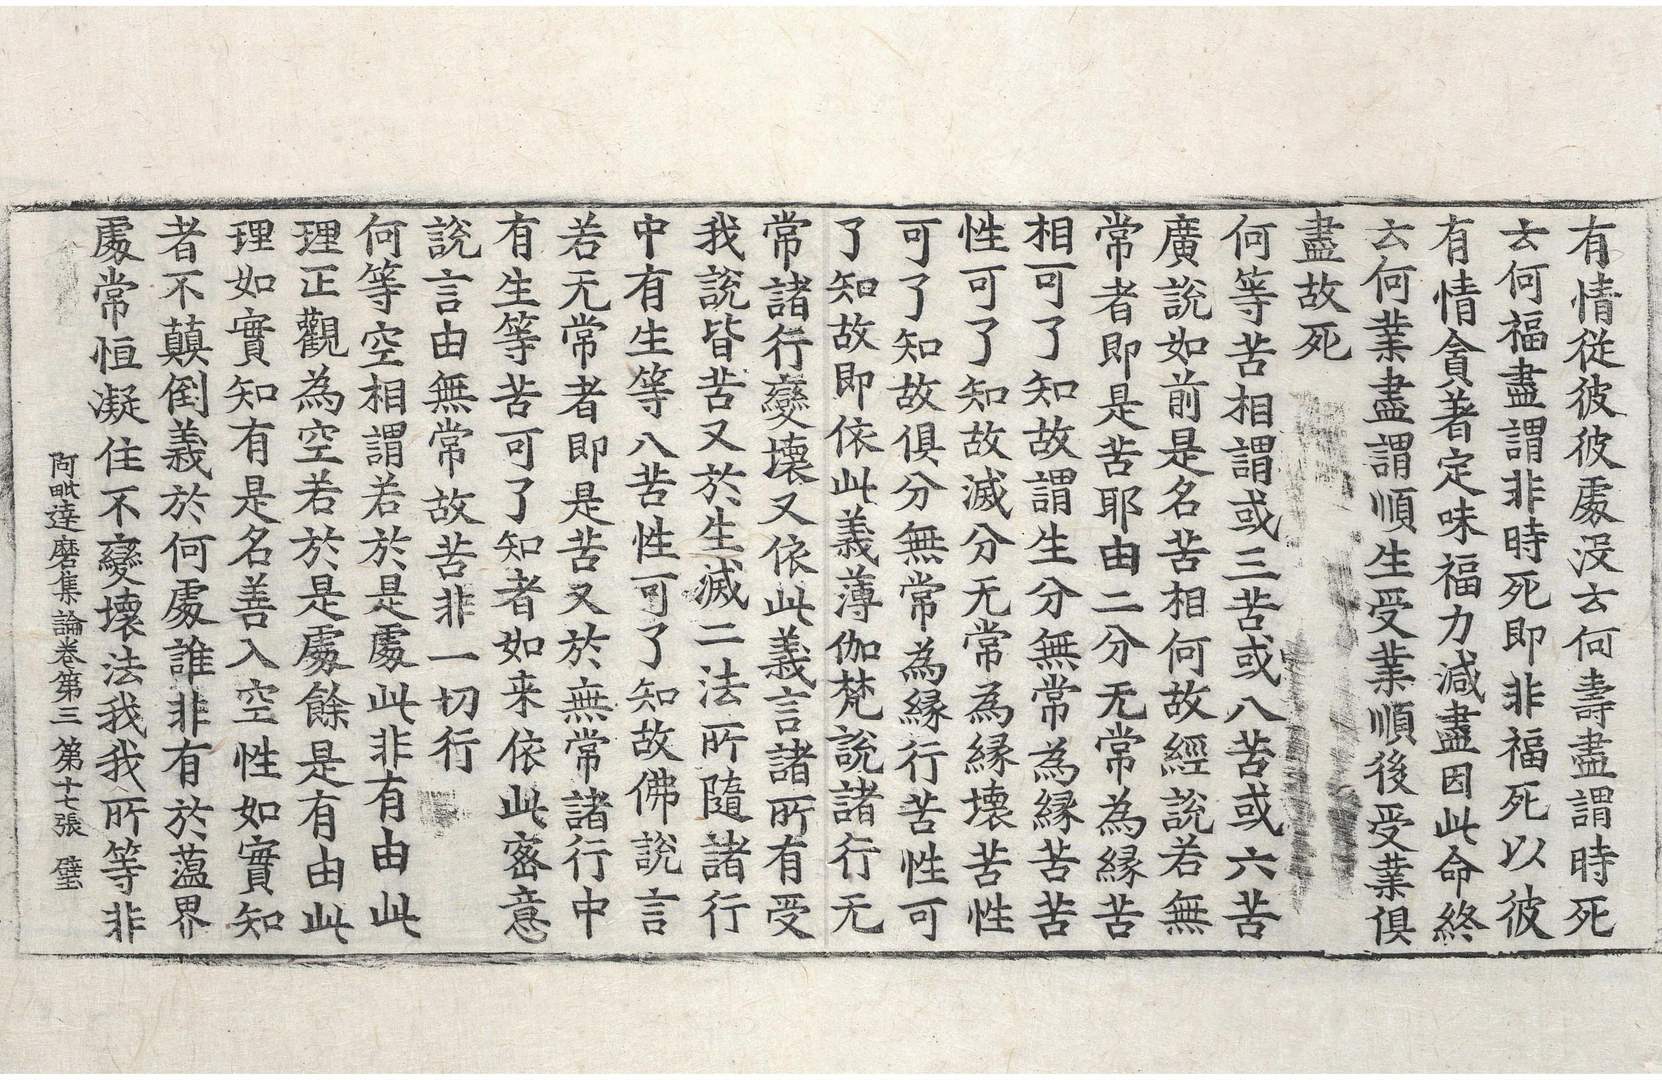 有情從彼彼處没去何壽盡謂時死
去何福盡謂非時死即非福死以彼
有情貪著定味福力減盡因此命終
去何業盡謂順生受業順後受業俱
盡故死
何等苦相謂或三苦或八苦或六苦
廣說如前是名苦相何故經說若無
常者即是苦耶由二分无常為緣苦
相可了知故謂生分無常為緣苦苦
性可了知故滅分无常為緣壞苦性
可了知故俱分無常為緣行苦性可
了知故即依此義薄伽梵說諸行无
常諸行變壞又依此義言諸所有受
我說皆苦又於生滅二法所隨諸行
中有生等八苦性可了知故佛說言
若无常者即是苦又於無常諸行中
有生等苦可了知者如来依此密意
說言由無常故苦非一切行
何等空相謂若於是處此非有由此
理正觀為空若於是處餘是有由此
理如實知有是名善入空性如實知
者不顛倒義於何處誰非有於蘊界
處常恒凝住不變壞法我我所等非
阿毗達磨集論卷第三 第十七張 璧